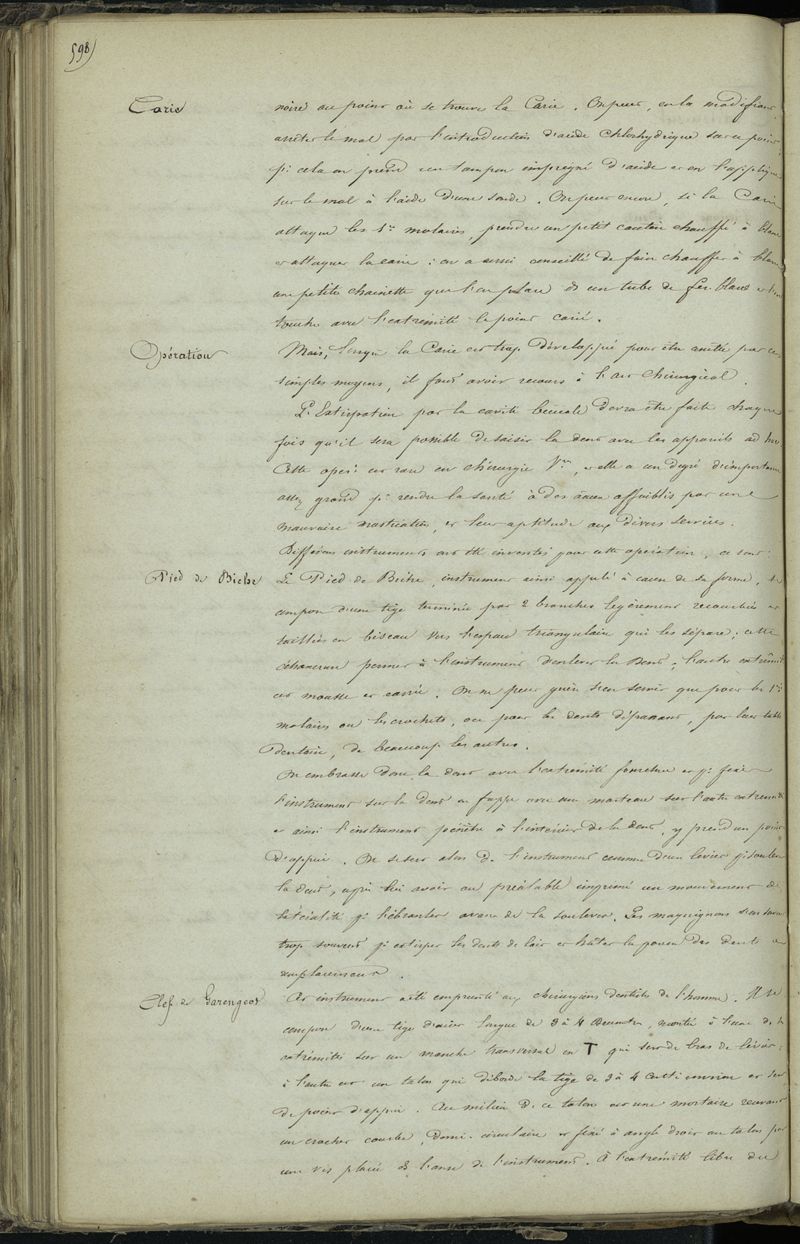 598)
Carie
noire au point où se trouve la Carie. On peut, en la modifiant,
arrêter le mal par l'introduction d'acide chlorhydrique sur ce point
pr cela on prend un tampon imprégné d'acide et on l'applique
sur le mal à l'aide d'une sonde. On peut encore, si la Carie
attaque les 1res molaires, prendre un petit cautère chauffé à blanc
et attaquer la carie : on a aussi conseillé de faire chauffer à blanc
une petite chainette que l'on place ds un tube de fer blanc et
toucher avec l'extrémité le point carié.
Opération
Mais, lorsque la Carie est trop développée pour être arrêtée par ces
simples moyens, il faut avoir recours à l'art chirurgical.
L'Extirpation par la cavité buccale devra être faite chaque
fois qu'il sera possible de saisir la dent avec les appareils ad hoc
Cette opéron est rare en chirurgie Vre, et elle a un degré d'importance
assez grand pr rendre la santé à des affaiblis par une
mauvaise mastication, et leur aptitude aux divers services.
Différents instruments ont été inventés pour cette opération, ce sont :
Pied de Biche
Le Pied de Biche, instrument ainsi appelé à cause de sa forme, se
compose d'une tige terminée par 2 branches légèrement recourbées et
taillées en biseau vers l'espace triangulaire qui les sépare ; cette
échancrure permet à l'instrument d'enlever la Dent ; l'autre extrémité
est mousse et carrée. On ne peut guère s'en servir que pour les 1res
molaires ou les crochets, ou pour les dents dépassant, par leur table
Dentaire, de beaucoup les autres.
On embrasse donc la dent avec l'extrémité fourchue et pr fixer
l'instrument sur la Dent on frappe avec un marteau sur l'autre extrémité
et ainsi l'instrument pénètre à l'intérieur de la dent, y prend un point
d'appui. On se sert alors de l'instrument comme d'un levier pr soulever
la dent, après lui avoir au préalable imprimé un mouvement de
latéralité pr l'ébranler avant de la soulever. Les maquignons s'en servent
trop souvent pr extirper les dents de lait et hâter la pousse des dents de
remplacement.
Clef de Garengeot
Cet instrument a été emprunté aux chirurgiens dentistes de l'homme. Il se
compose d'une tige d'acier longue de 3 à 4 Décimètres, montée à l'une de ses
extrémités sur un manche transversal en T qui sert de bras de levier ;
à l'autre est un talon qui déborde la tige de 3 à 4 centi environ et sert
de point d'appui. Au milieu de ce talon est une mortaise recevant
un crochet courbe, demi-circulaire et fixé à angle droit au talon par
une vis placée ds l'anse de l'instrument. À l'extrémité libre du